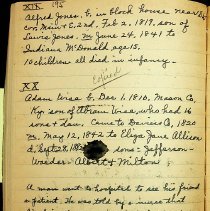 XIX 195
Alfred Jones. b. in block house near
con. Mine C. 22nd. Feb. 2, 1819, son of
Lewis Jones. m June 24, 1841 to
Indiana McDonald age 15.
10 children all died in infancy.
Copied
XX
Adam Wise b. Dec. 1, 1810, Mason Co.
Ky. son of Abram Wise, who had 16
sons & dau. Came to Daviess Co, 1820
m. May 12, 1842 to Eliza Jane Allison
d. Sept 29, sons = Jefferson -
Albert & Milton
A man went to hospital to see his friend
a patient. He was told by a nurse that